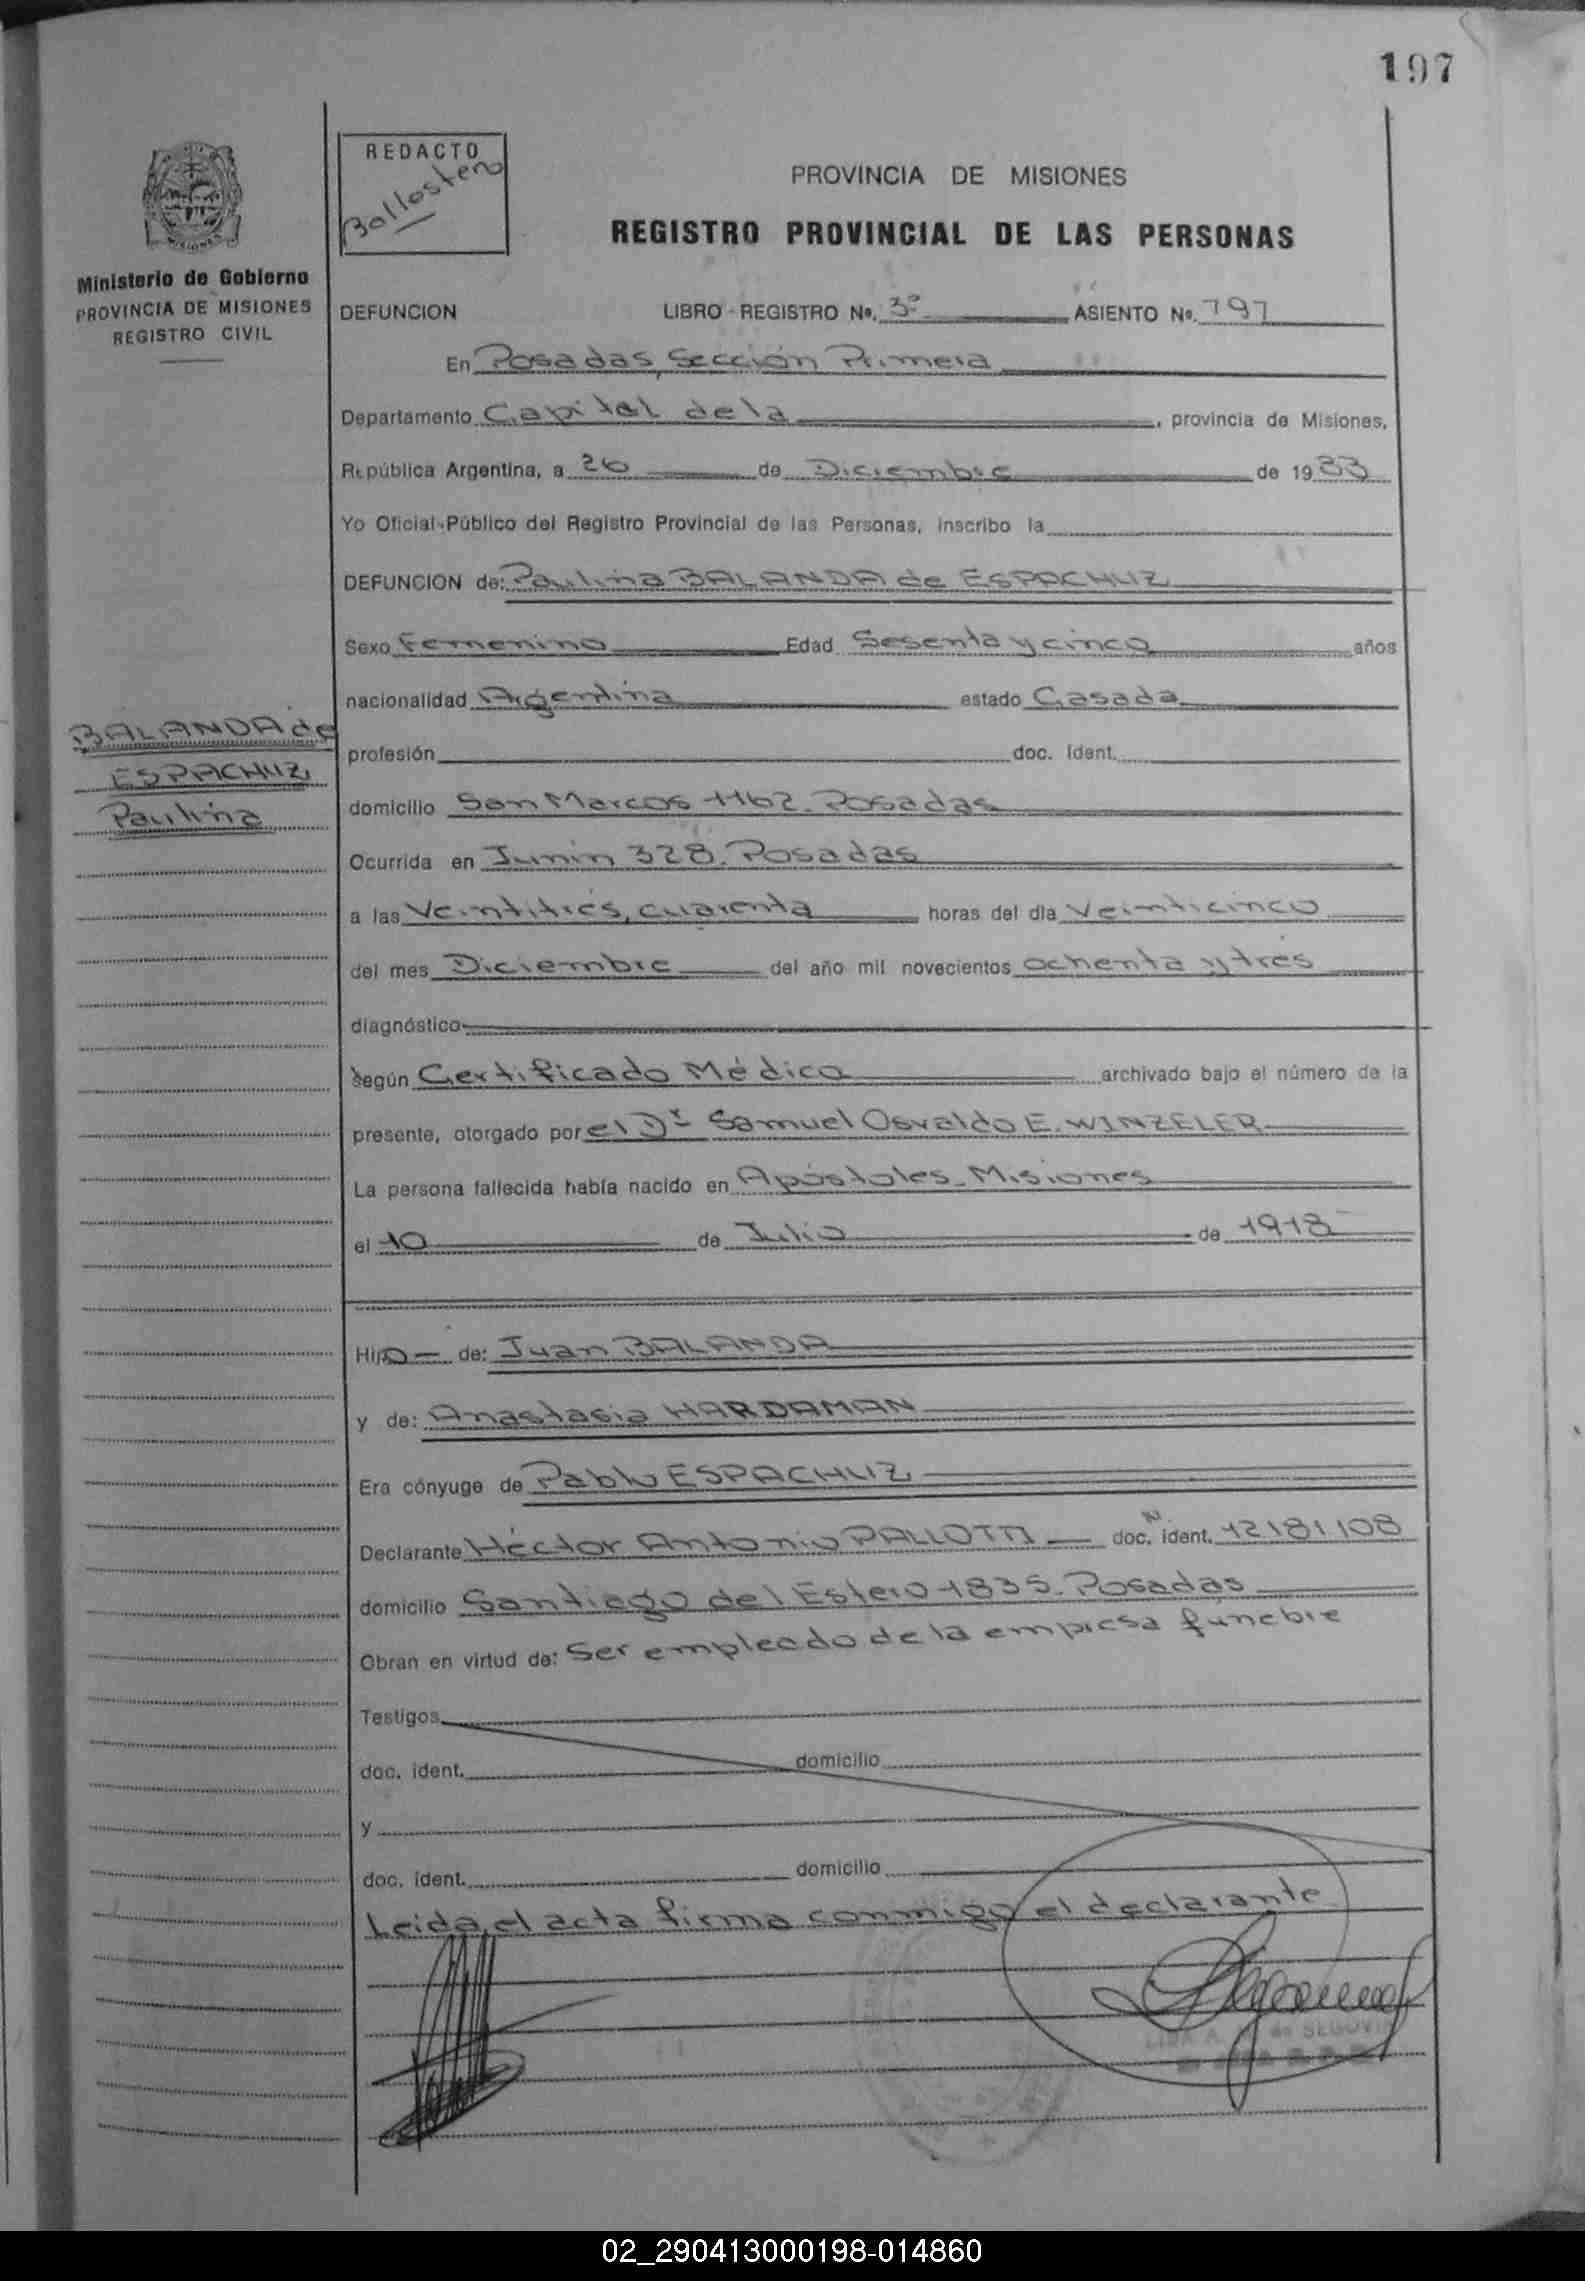 197
REDACTO
Ballostero
PROVINCIA DE MISIONES
REGISTRO PROVINCIAL DE LAS PERSONAS
MISIONES
Ministerio de Gobierno
PROVINCIA DE MISIONES
REGISTRO CIVIL
DEFUNCION LIBRO - REGISTRO Nº. 3º ASIENTO Nº. 797
En Posadas, Sección Primera
Departamento Capital de la, provincia de Misiones,
República Argentina, a 26 de Diciembre de 1983
Yo Oficial Público del Registro Provincial de las Personas, inscribo la
DEFUNCION de: Paulina BALANDA de ESPACHUZ
Sexo Femenino Edad Sesenta y cinco años
nacionalidad Argentina estado Casada
BALANDA de
ESPACHUZ
Paulina
profesión doc. ident.
domicilio San Marcos 1162. Posadas
Ocurrida en Junín 328. Posadas
a las Veintitrés, cuarenta horas del día Veinticinco
del mes Diciembre del año mil novecientos ochenta y tres
diagnóstico
según Certificado Médico archivado bajo el número de la
presente, otorgado por el Dr Samuel Osvaldo E. WINZELER
La persona fallecida había nacido en Apóstoles. Misiones
el 10 de Julio de 1918
Hijo de: Juan BALANDA
y de: Anastasia HARDAMAN
Era cónyuge de Pablo ESPACHUZ
Declarante Héctor Antonio PALLOTTI doc. ident. 12181108
domicilio Santiago del Estero 1835. Posadas
Obran en virtud de: Ser empleado de la empresa fúnebre
Testigos
doc. ident. domicilio
y
doc. ident. domicilio
Leida el acta firma conmigo el declarante
de SEGOVIA
02_290413000198-014860